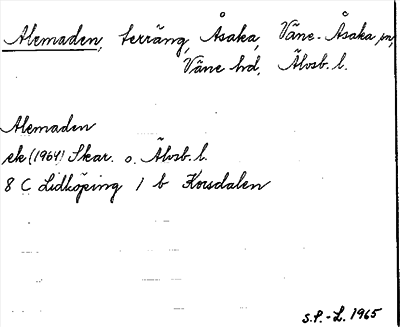 Alemaden, terräng, Åsaka, Väne-Åsaka sn,
Väne hd, Älvsb. l.
Alemaden
ek (1964) Skar. o. Älvsb. l.
8 C Lidköping 1 b Korsdalen
S.P.-L. 1965